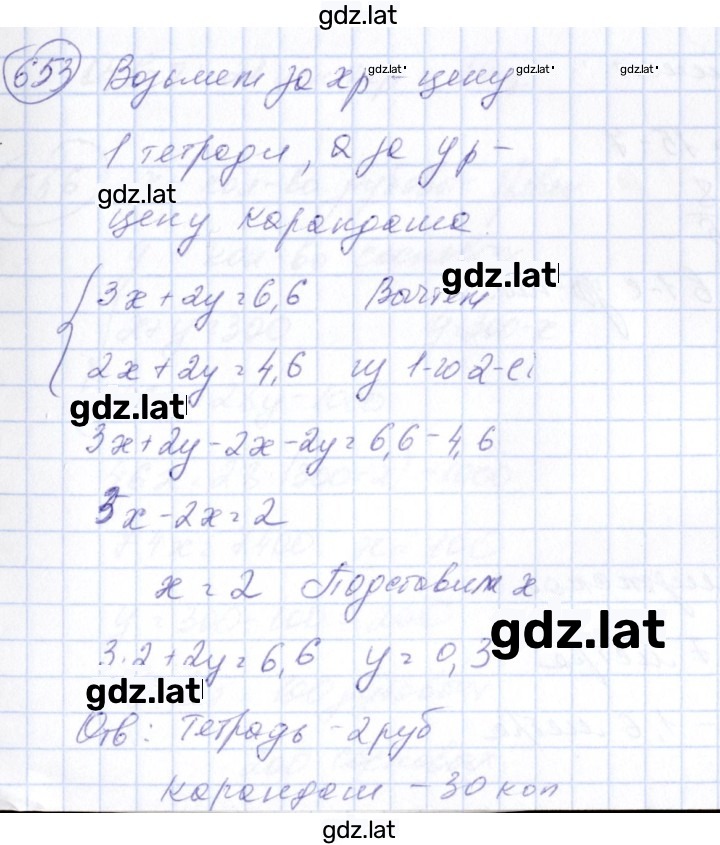 gdz.lat
653 Возьмем за xр - цену
gdz.lat gdz.lat gdz.lat
1 тетради, а за yр -
gdz.lat
цену карандаша
gdz.lat
3x + 2y = 6,6 Вычтем
2x + 2y = 4,6 из 1-го 2-ei
gdz.lat
3x + 2y - 2x - 2y = 6,6 - 4,6
3x - 2x = 2
x = 2 Подставим x
gdz.lat
3·2 + 2y = 6,6 y = 0,3
gdz.lat
Отв: Тетрадь - 2 руб
карандаш - 30 коп
gdz.lat